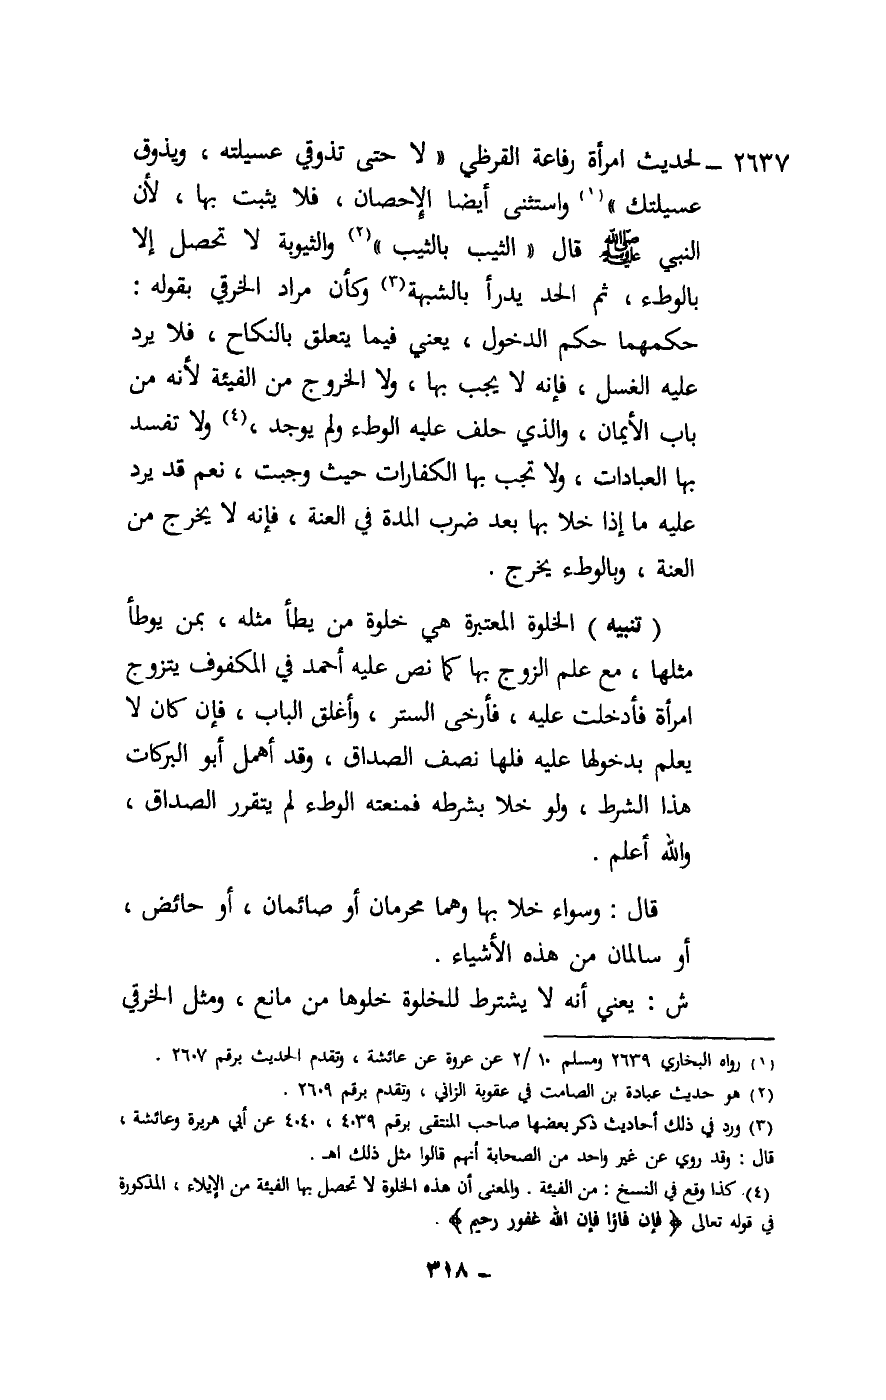 ٢٦٣٧ – لحديث امرأة رفاعة القرظي « لا حتى تذوقي عسيلته ، ويذوق
عسيلتك »(١) واستثنى أيضا الإحصان ، فلا يثبت بها ، لأن
النبي ﷺ قال « الثيب بالثيب »(٢) والثيوبة لا تحصل إلا
بالوطء ، ثم الحد يدرأ بالشبهة(٣) وكأن مراد الخرقي بقوله :
حكمهما حكم الدخول ، يعني فيما يتعلق بالنكاح ، فلا يرد
عليه الغسل ، فإنه لا يجب بها ، ولا الخروج من الفيئة لأنه من
باب الأيمان ، والذي حلف عليه الوطء ولم يوجد ،(٤) ولا تفسد
بها العبادات ، ولا تجب بها الكفارات حيث وجبت ، نعم قد يرد
عليه ما إذا خلا بها بعد ضرب المدة في العنة ، فإنه لا يخرج من
العنة ، وبالوطء يخرج .
( تنبيه ) الخلوة المعتبرة هي خلوة من يطأ مثله ، بمن يوطأ
مثلها ، مع علم الزوج بها كما نص عليه أحمد في المكفوف يتزوج
امرأة فأدخلت عليه ، فأرخى الستر ، وأغلق الباب ، فإن كان لا
يعلم بدخولها عليه فلها نصف الصداق ، وقد أهمل أبو البركات
هذا الشرط ، ولو خلا بشرطه فمنعته الوطء لم يتقرر الصداق ،
والله أعلم .
قال : وسواء خلا بها وهما محرمان أو صائمان ، أو حائض ،
أو سالمان من هذه الأشياء .
ش : يعني أنه لا يشترط للخلوة خلوها من مانع ، ومثل الخرقي
(١) رواه البخاري ٢٦٣٩ ومسلم ١٠ /٢ عن عروة عن عائشة ، وتقدم الحديث برقم ٢٦٠٧ .
(٢) هو حديث عبادة بن الصامت في عقوبة الزاني ، وتقدم برقم ٢٦٠٩ .
(٣) ورد في ذلك أحاديث ذكر بعضها صاحب المنتقى برقم ٤٠٣٩ ، ٤٠٤٠ عن أبي هريرة وعائشة ،
قال : وقد روي عن غير واحد من الصحابة أنهم قالوا مثل ذلك اهـ .
(٤) كذا وقع في النسخ : من الفيئة . والمعنى أن هذه الخلوة لا تحصل بها الفيئة من الإيلاء ، المذكورة
في قوله تعالى ﴿ فإن فاؤا فإن الله غفور رحيم ﴾ .
– ٣١٨